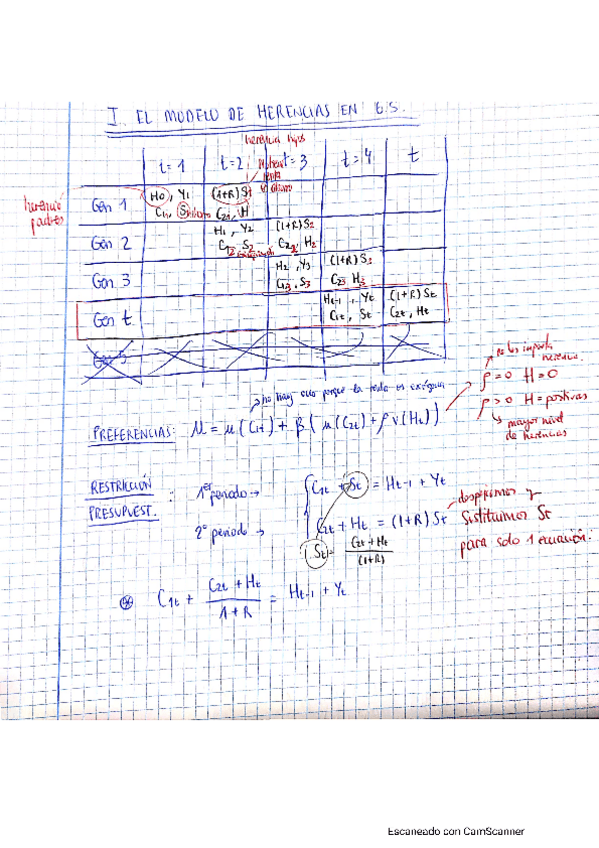 I. EL MODELO DE HERENCIAS EN G.S.
herencia hijos
t=1 t=2 t=3 t=4 t
herencia padres
Gen 1 H0, Y1 (1+R)St
C11, S1 C21, H
Gen 2 H1, Y2 (1+R)S2
C12 S2 C22, H2
Gen 3 H2, Y3 (1+R)S3
C13, S3 C23 H3
Gen t Ht-1 + Yt (1+R)St
C1t, St C2t, Ht
Gen 5
no hay ocio porque la renta es exógena
PREFERENCIAS: M = u(C1t) + β(u(C2t) + ρ v(Ht))
no les importa herencia.
ρ=0 H=0
ρ>0 H=positivas
mayor nivel de herencias
RESTRICCIÓN PRESUPUEST. :
1er periodo → C1t + St = Ht-1 + Yt
2º periodo → C2t + Ht = (1+R) St
St = C2t + Ht / (1+R)
despejamos y
sustituimos St
para solo 1 ecuación.
C1t + C2t + Ht / 1+R = Ht-1 + Yt
Escaneado con CamScanner